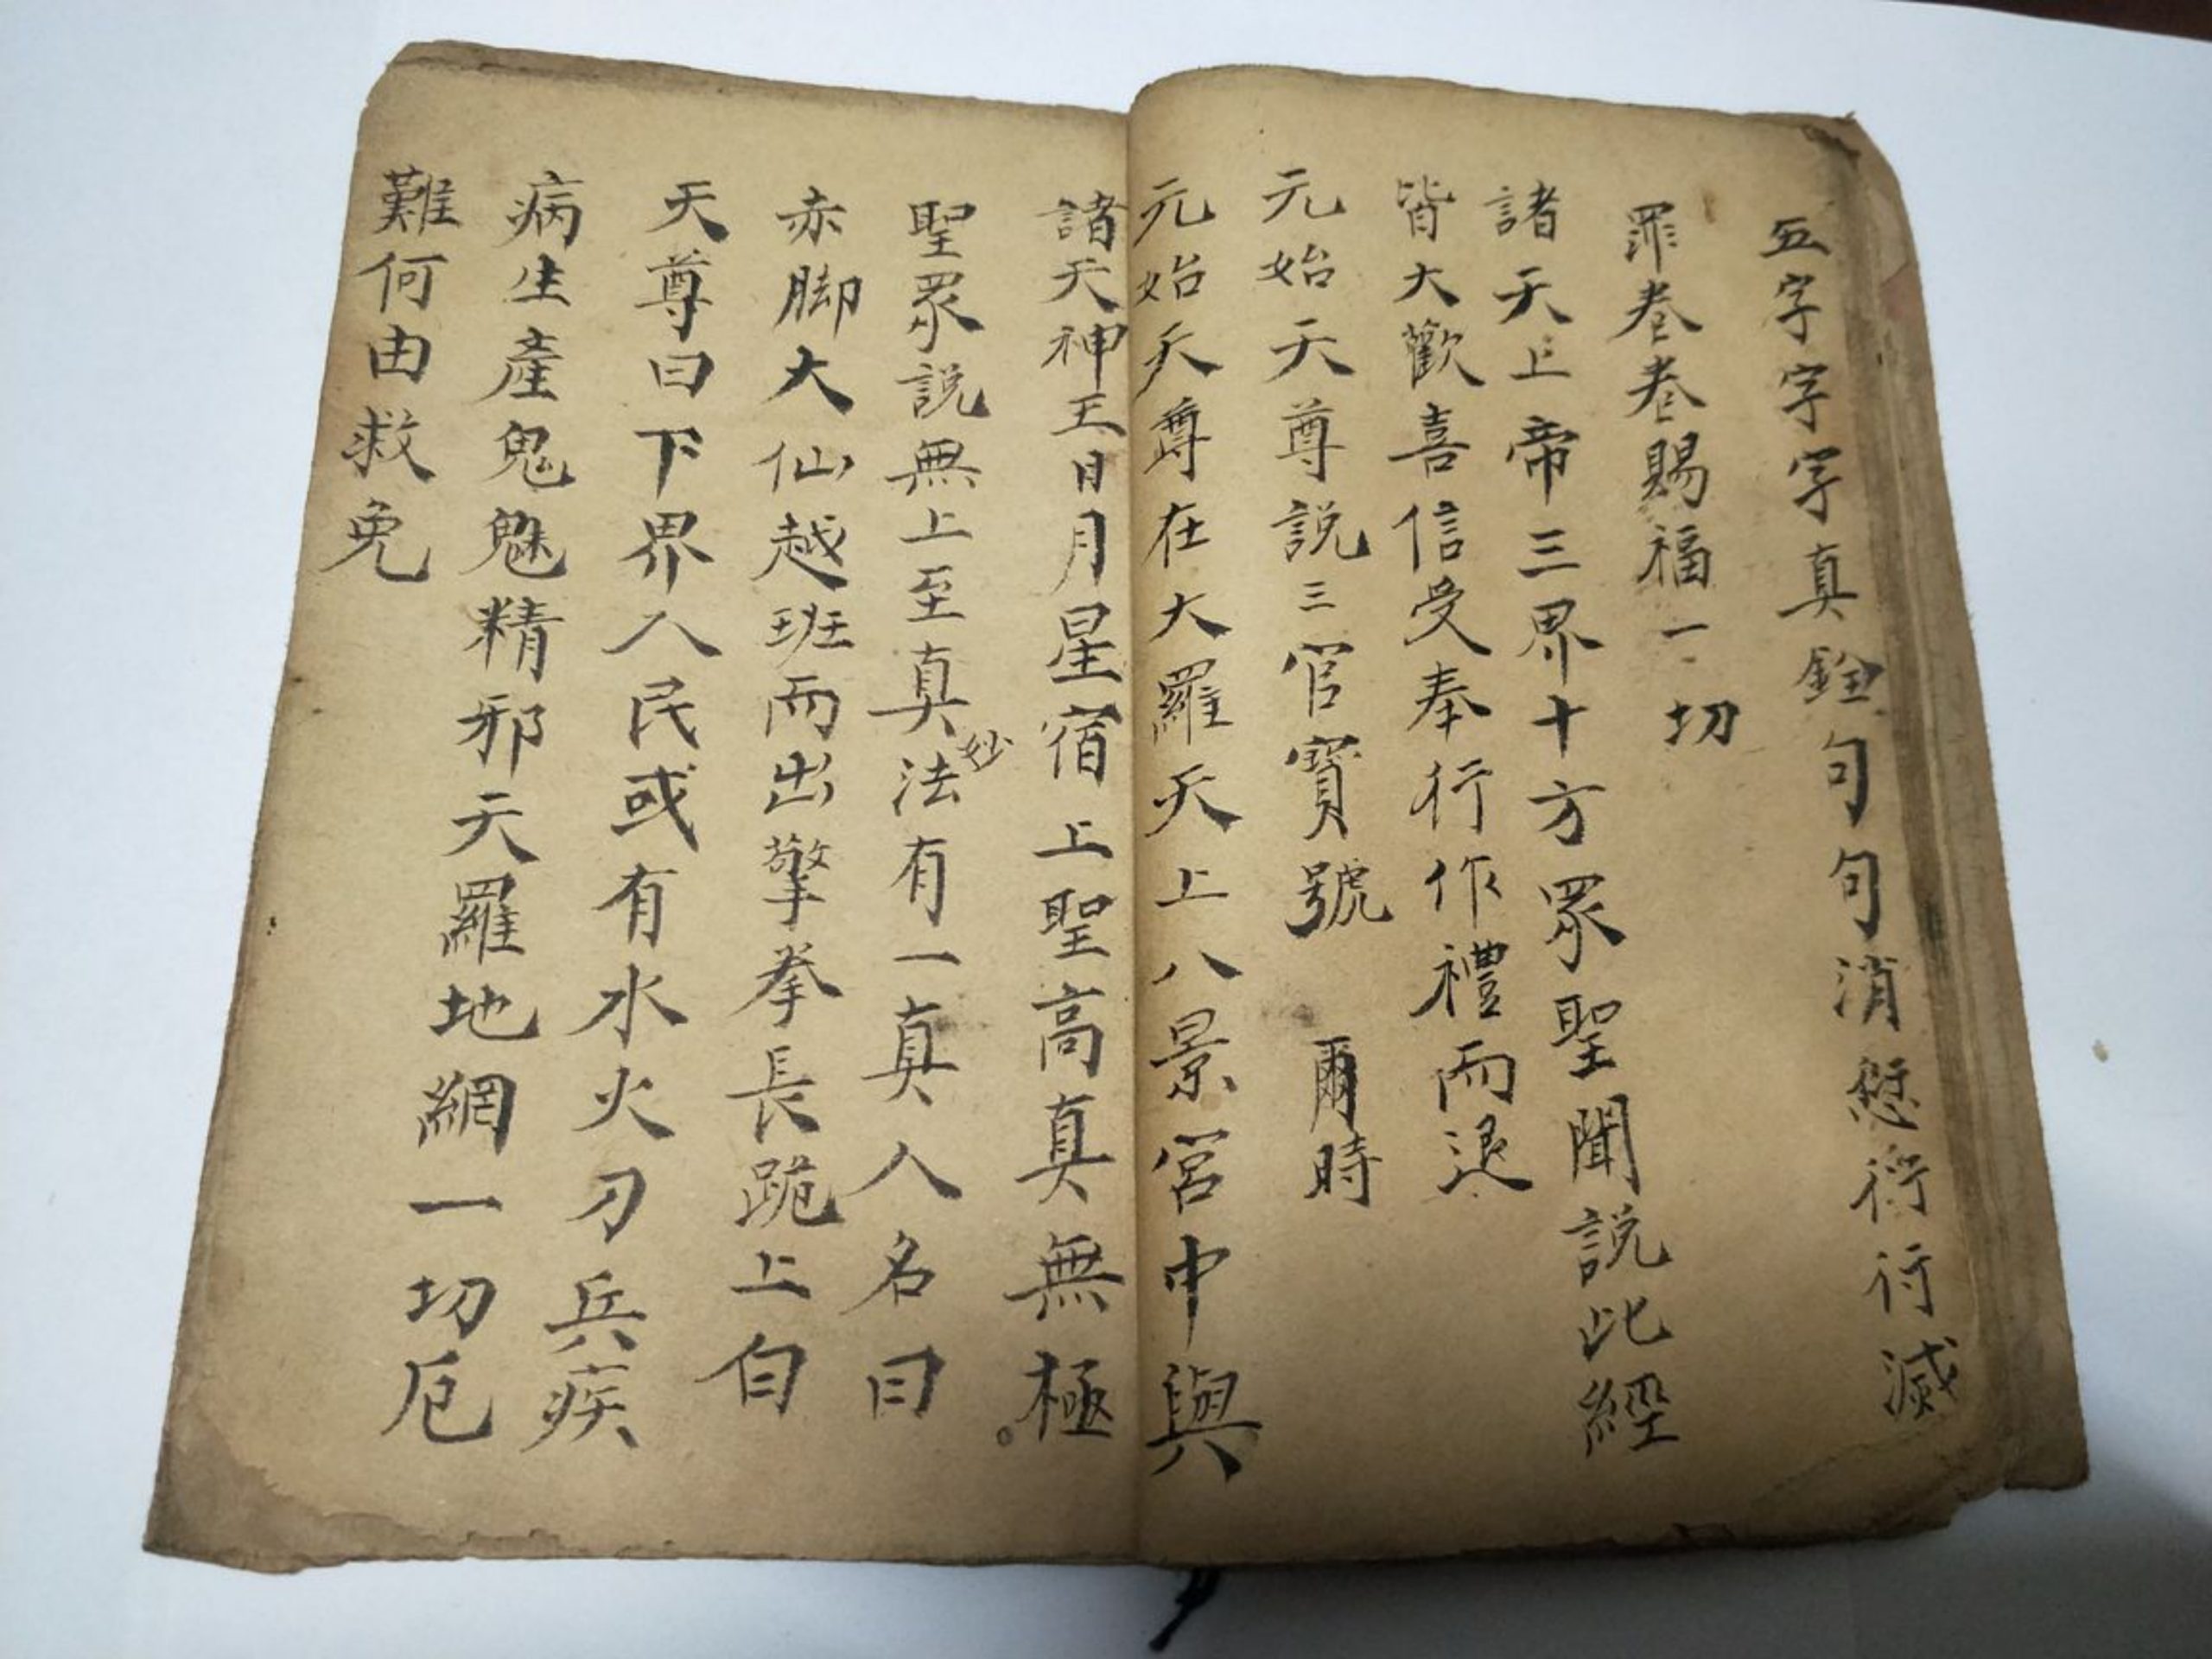 五字字字真銓句句消愆行行滅
罪卷卷賜福一切
諸天上帝三界十方眾聖聞說此經
皆大歡喜信受奉行作禮而退
元始天尊說三官寶號　爾時
元始天尊在大羅天上八景宮中與
諸天神王日月星宿上聖高真無極。
聖眾說無上至真妙法有一真人名曰
赤脚大仙越班而出擎拳長跪上白
天尊曰下界人民或有水火刀兵疾
病生產鬼魅精邪天羅地網一切厄
難何由救免